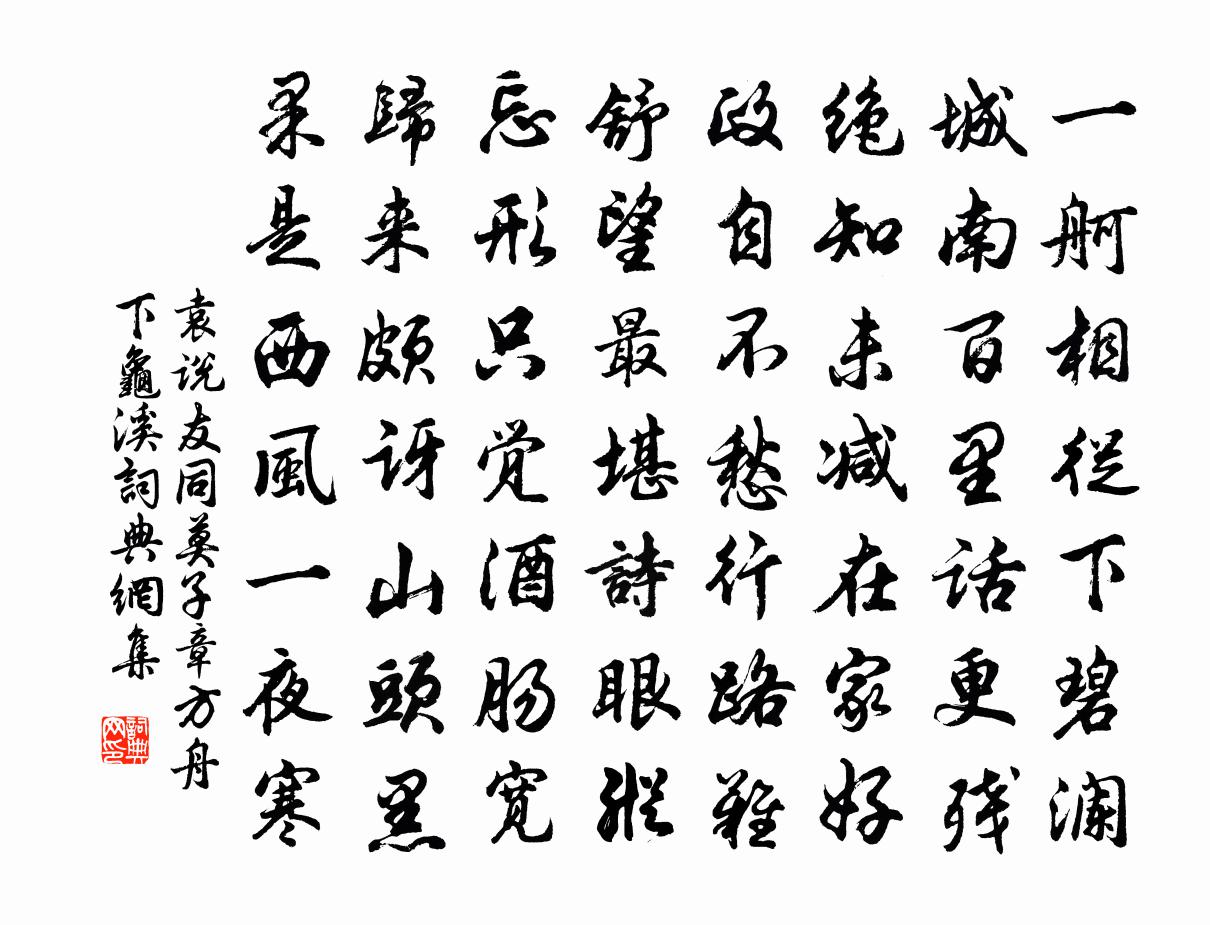 一舸相從下碧澜
城南百里话更残
绝知未减在家好
政自不愁行路難
舒望最堪詩眼縱
忘形只觉酒肠宽
歸来頗讶山頭黑
果是西風一夜寒
袁说友同莫子章方舟
下龜溪詞典網集
詞典网印